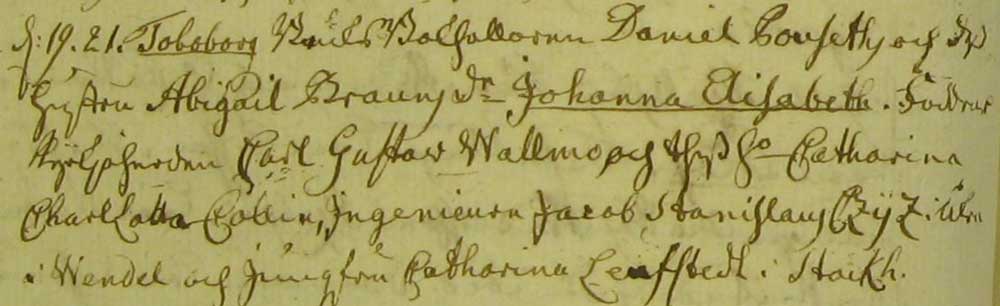 d: 19. 21. Toboborg Bokhållaren Daniel Cousettz och deß
hustru Abigail Brauns dr Johanna Elisabeth. Faddrar
Kyrckoherden Carl Gustav Wallmo och theß ho Catharina
Charlotta Collin, Ingenieuren Jacob Stanislaus
i Wendel och Jungfru Catharina Leufstedt i Stockh.